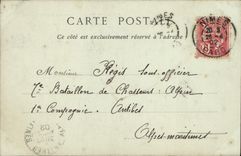 CARTE POSTALE
Ce côté est exclusivement réservé à l'adresse
NIMES
Monsieur Régis sous-officier
7e Bataillon de Chasseurs Alpins
1e Compagnie Antibes
Alpes-maritimes